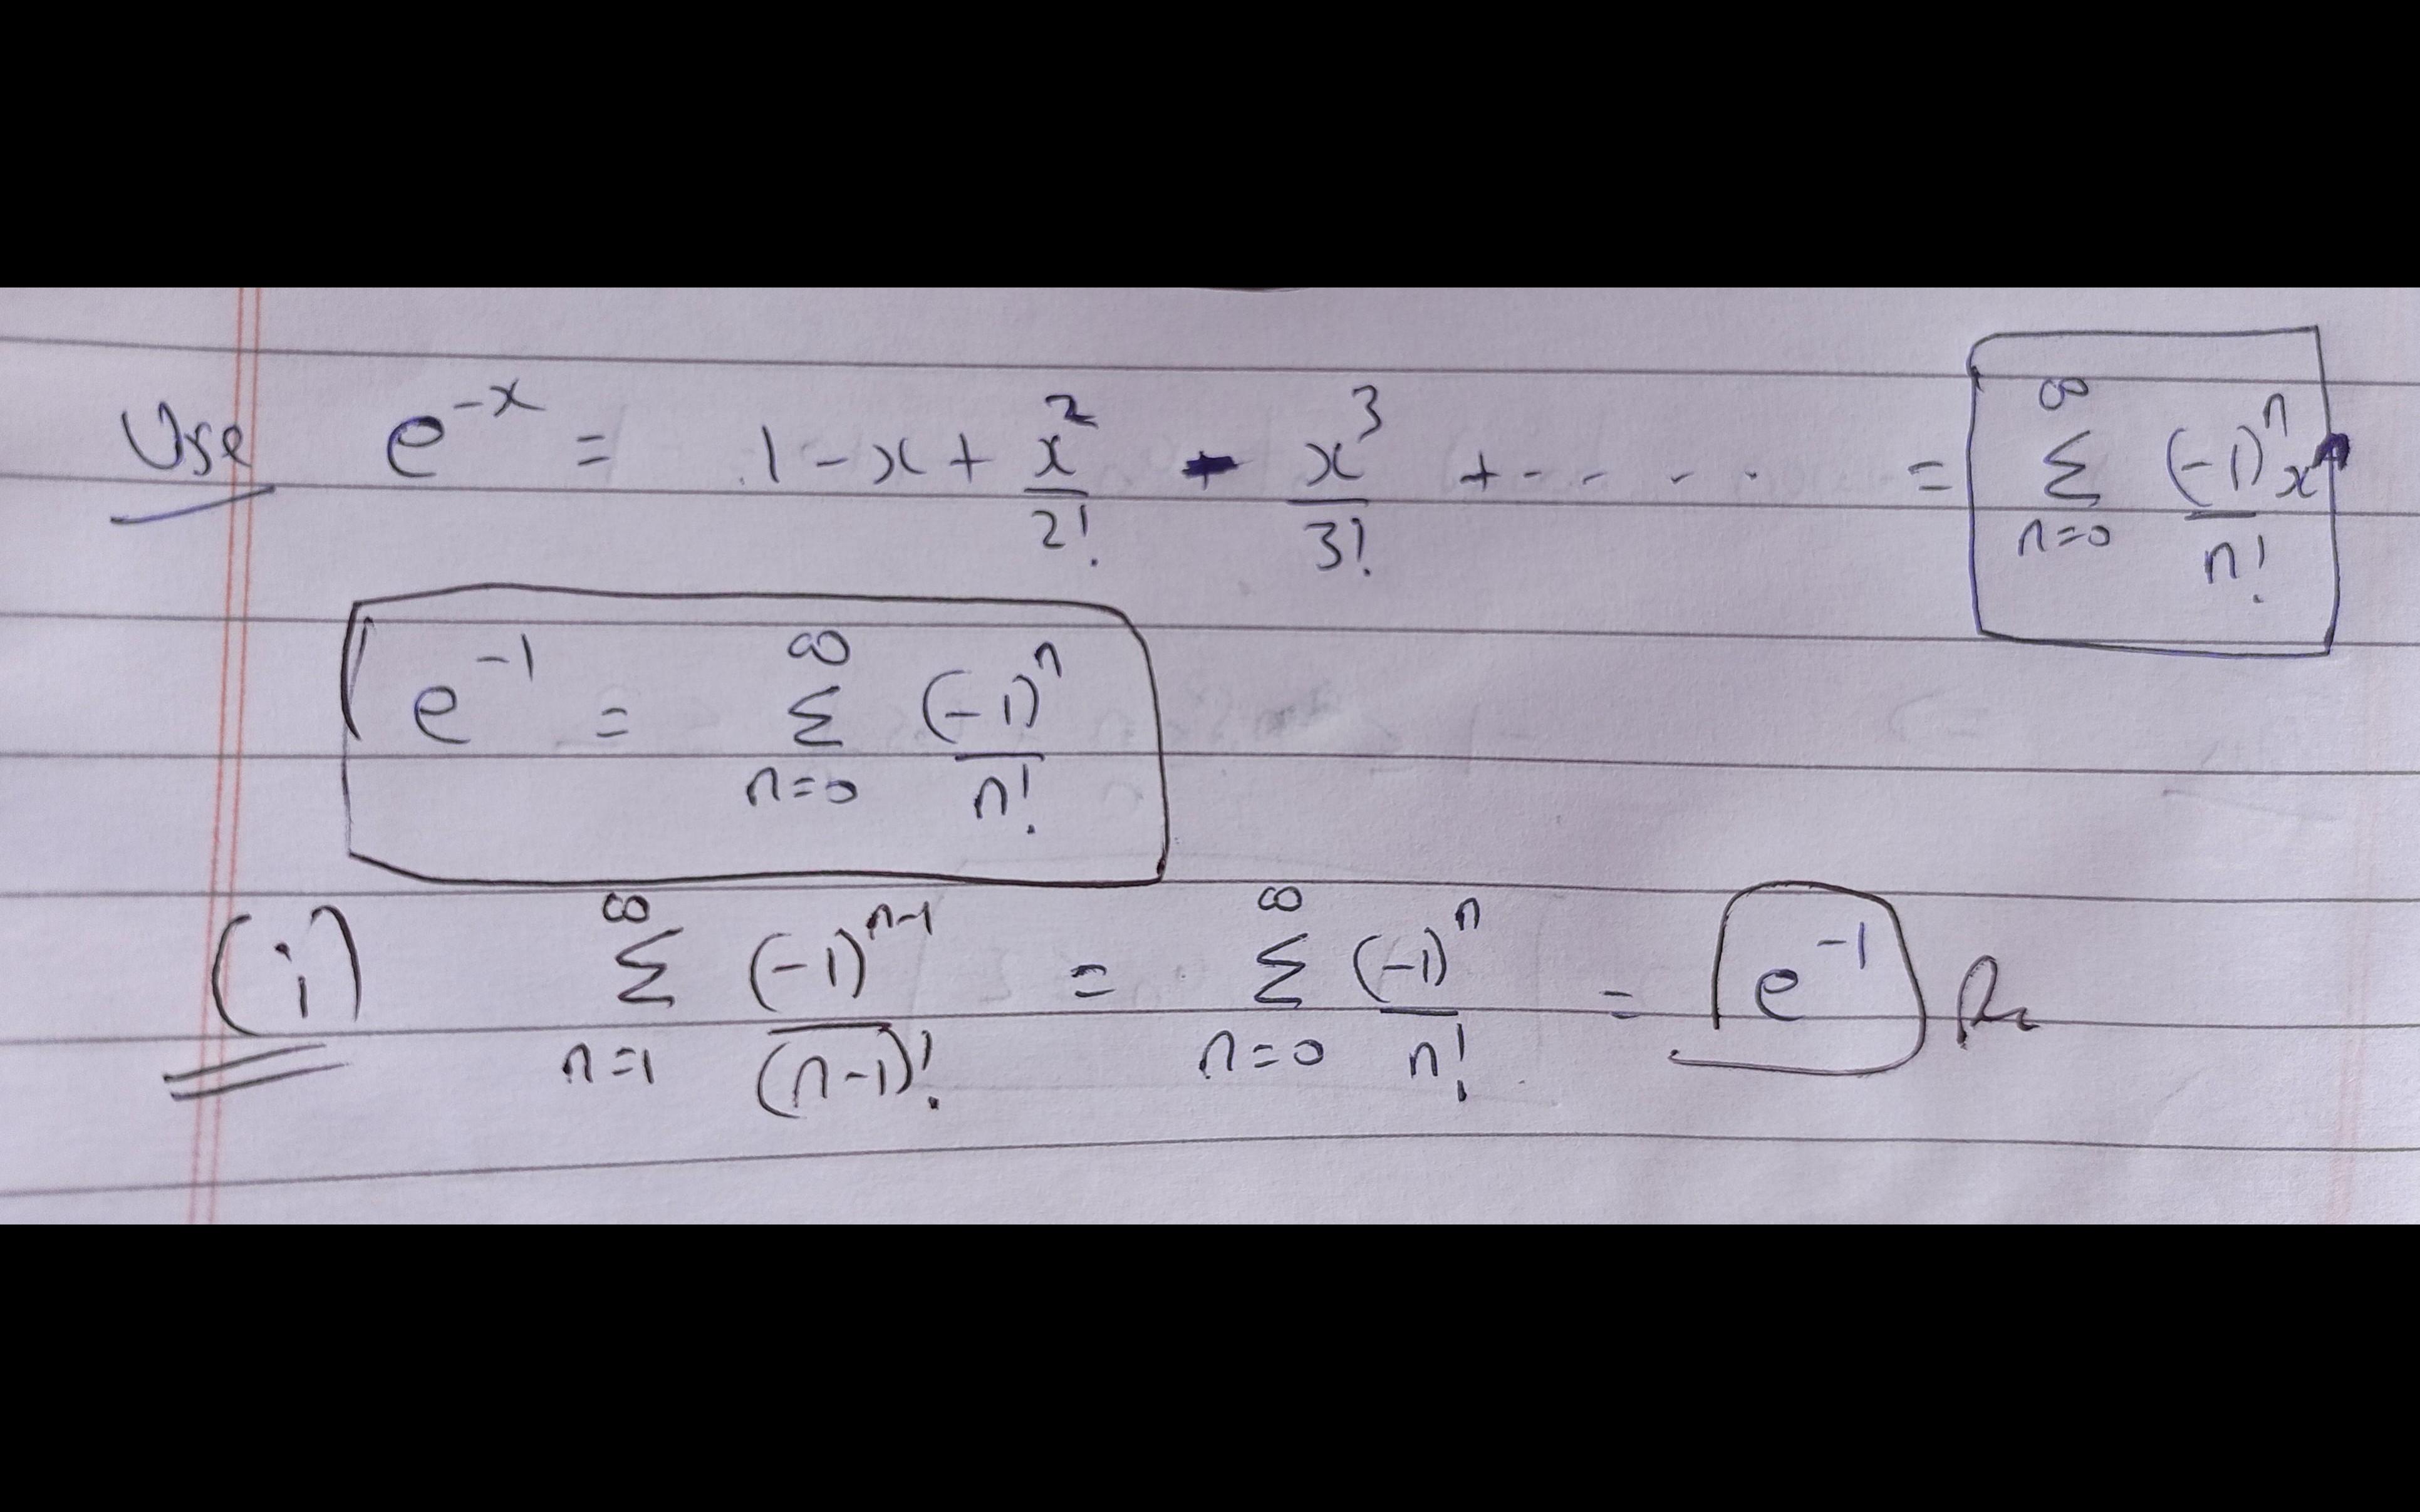 Use e^{-x} = 1 - x + \frac{x^2}{2!} - \frac{x^3}{3!} + - - - - = \sum_{n=0}^{\infty} \frac{(-1)^n x^n}{n!}
e^{-1} = \sum_{n=0}^{\infty} \frac{(-1)^n}{n!}
(i) \sum_{n=1}^{\infty} \frac{(-1)^{n-1}}{(n-1)!} = \sum_{n=0}^{\infty} \frac{(-1)^n}{n!} = e^{-1}